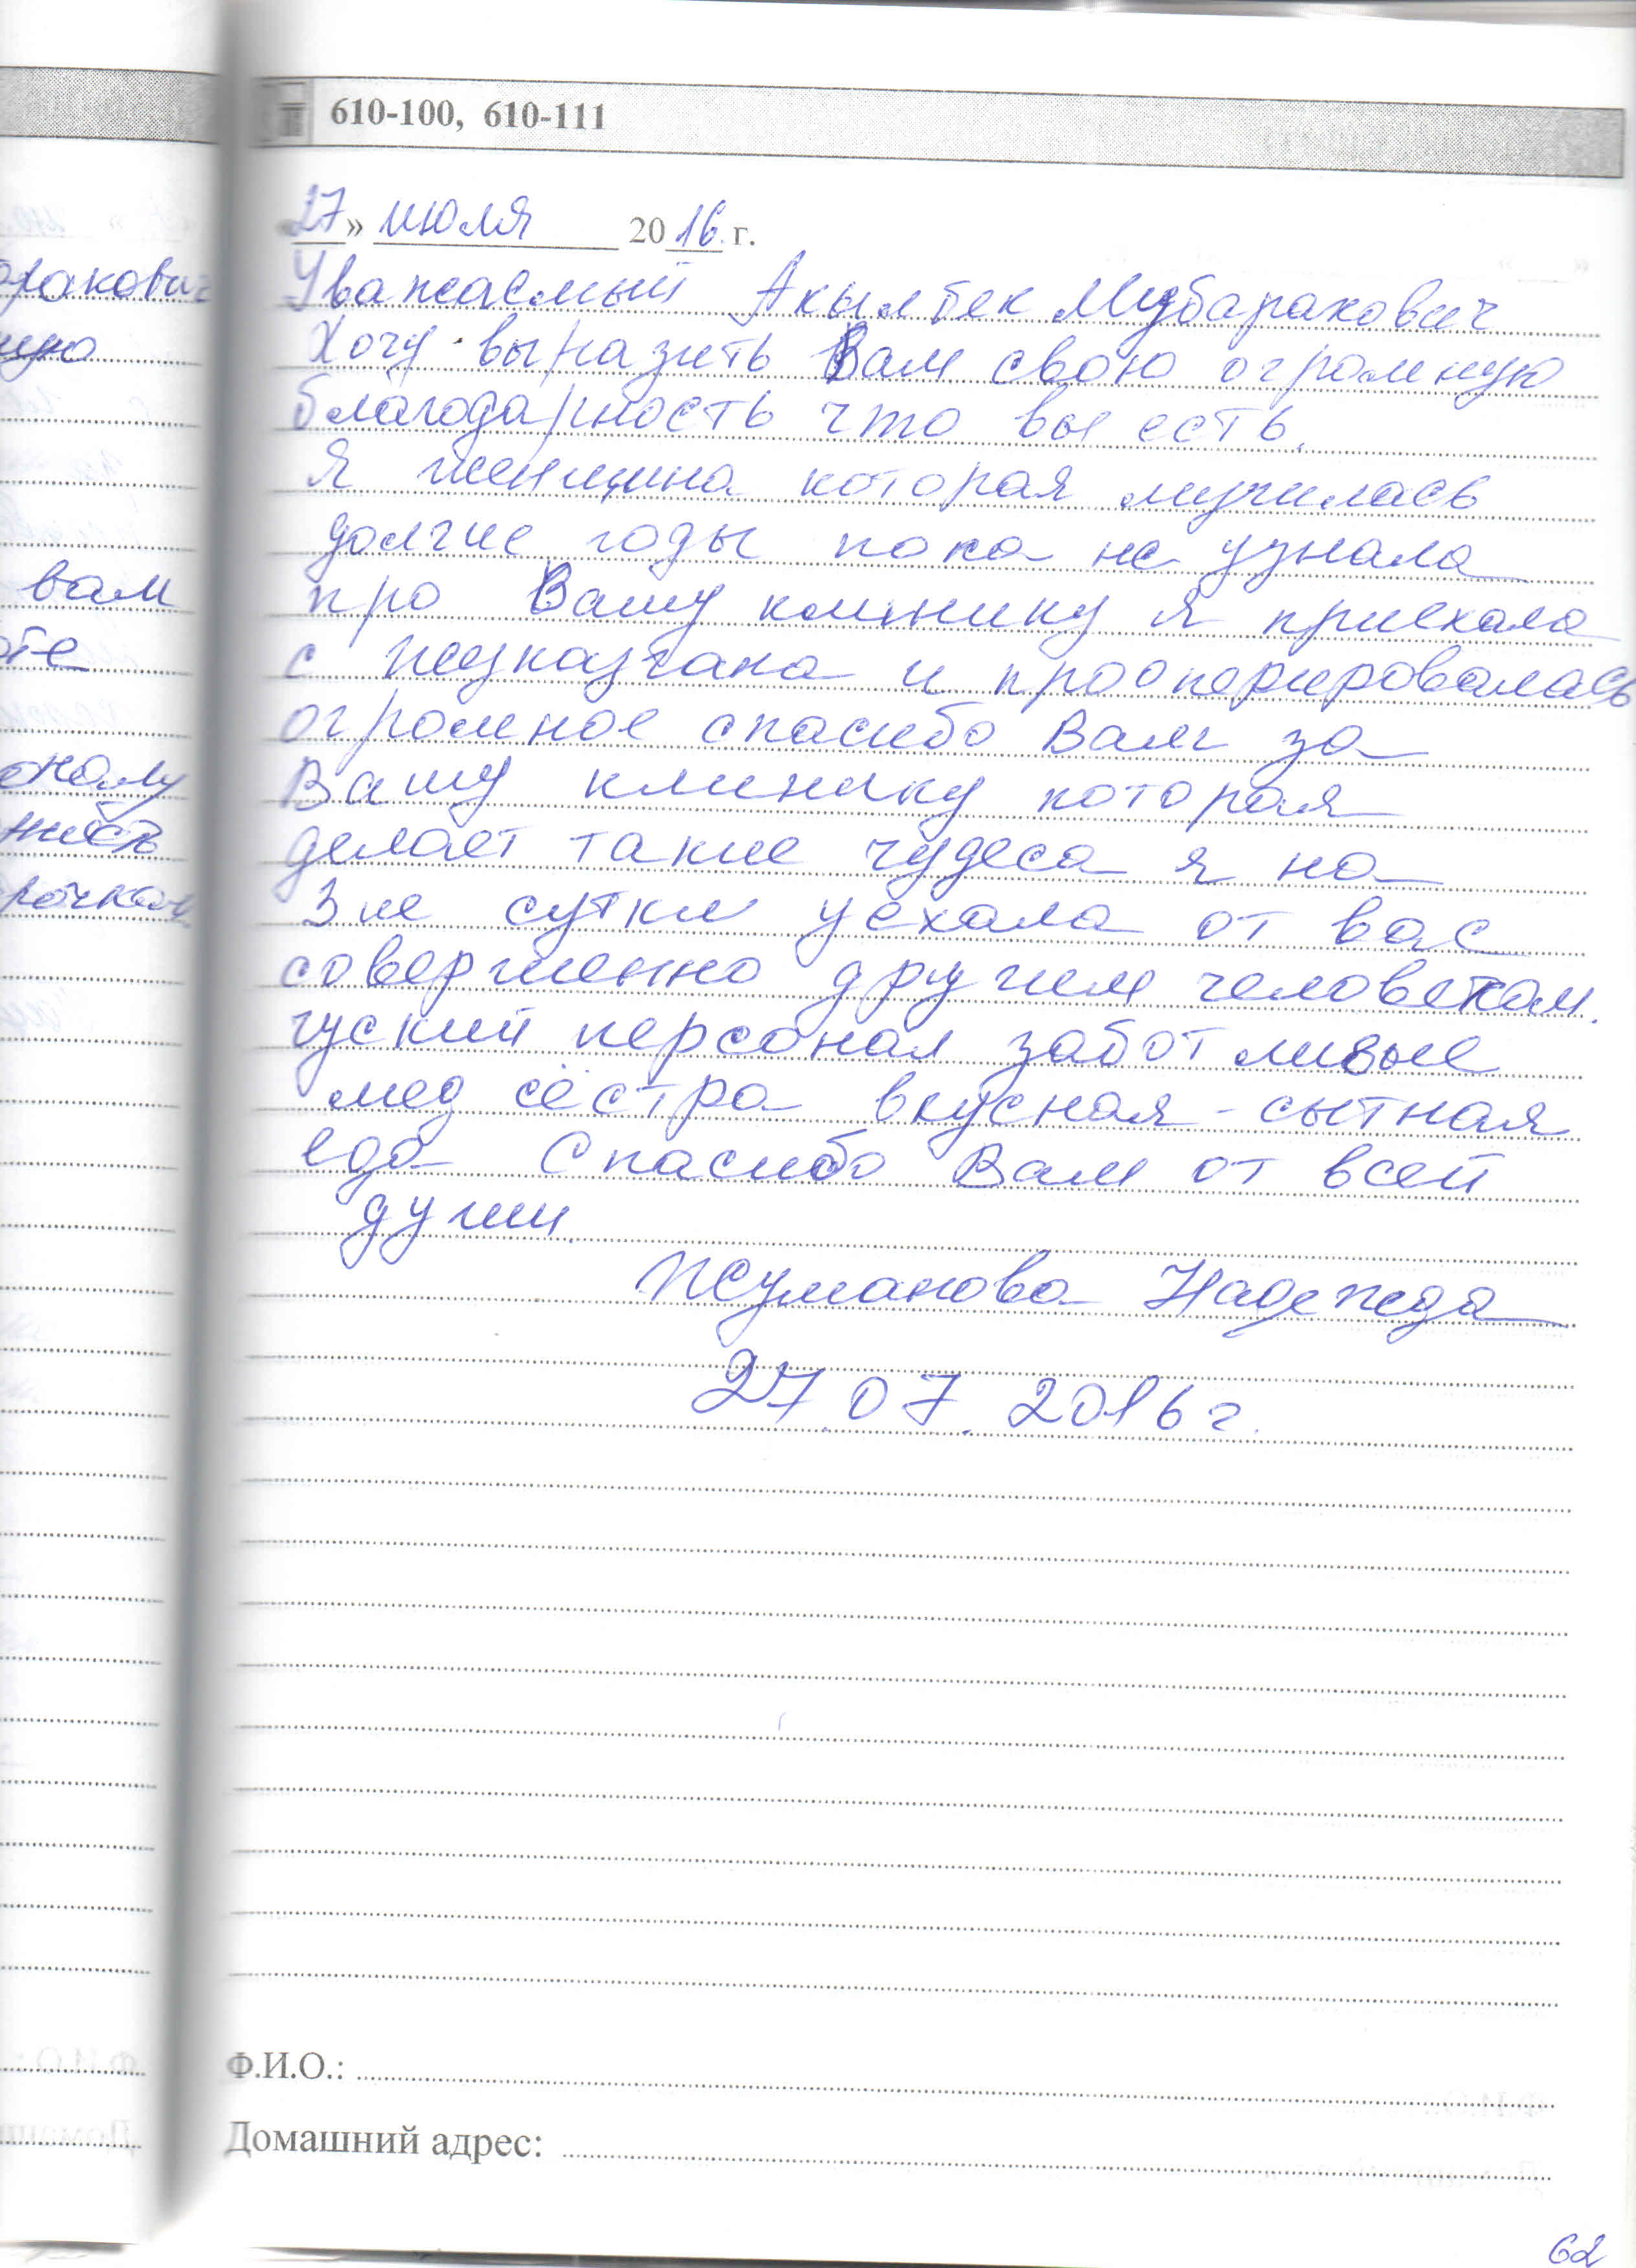 610-100, 610-111
27» июля 2016 г.
Уважаемый Акылбек Мубаракович
Хочу выразить Вам свою огромную
благодарность что вы есть.
Я женщина которая мучилась
долгие годы пока не узнала
про Вашу клинику я приехала
с Жезказгана и прооперировалась
огромное спасибо Вам за
Вашу клинику которая
делает такие чудеса я на
3 ие сутки уехала от вас
совершенно другим человеком.
чуский персонал заботливые
мед сёстра вкусная - сытная
еда Спасибо Вам от всей
души.
Жуманова Надежда
27.07.2016 г.
Ф.И.О.:
Домашний адрес:
62